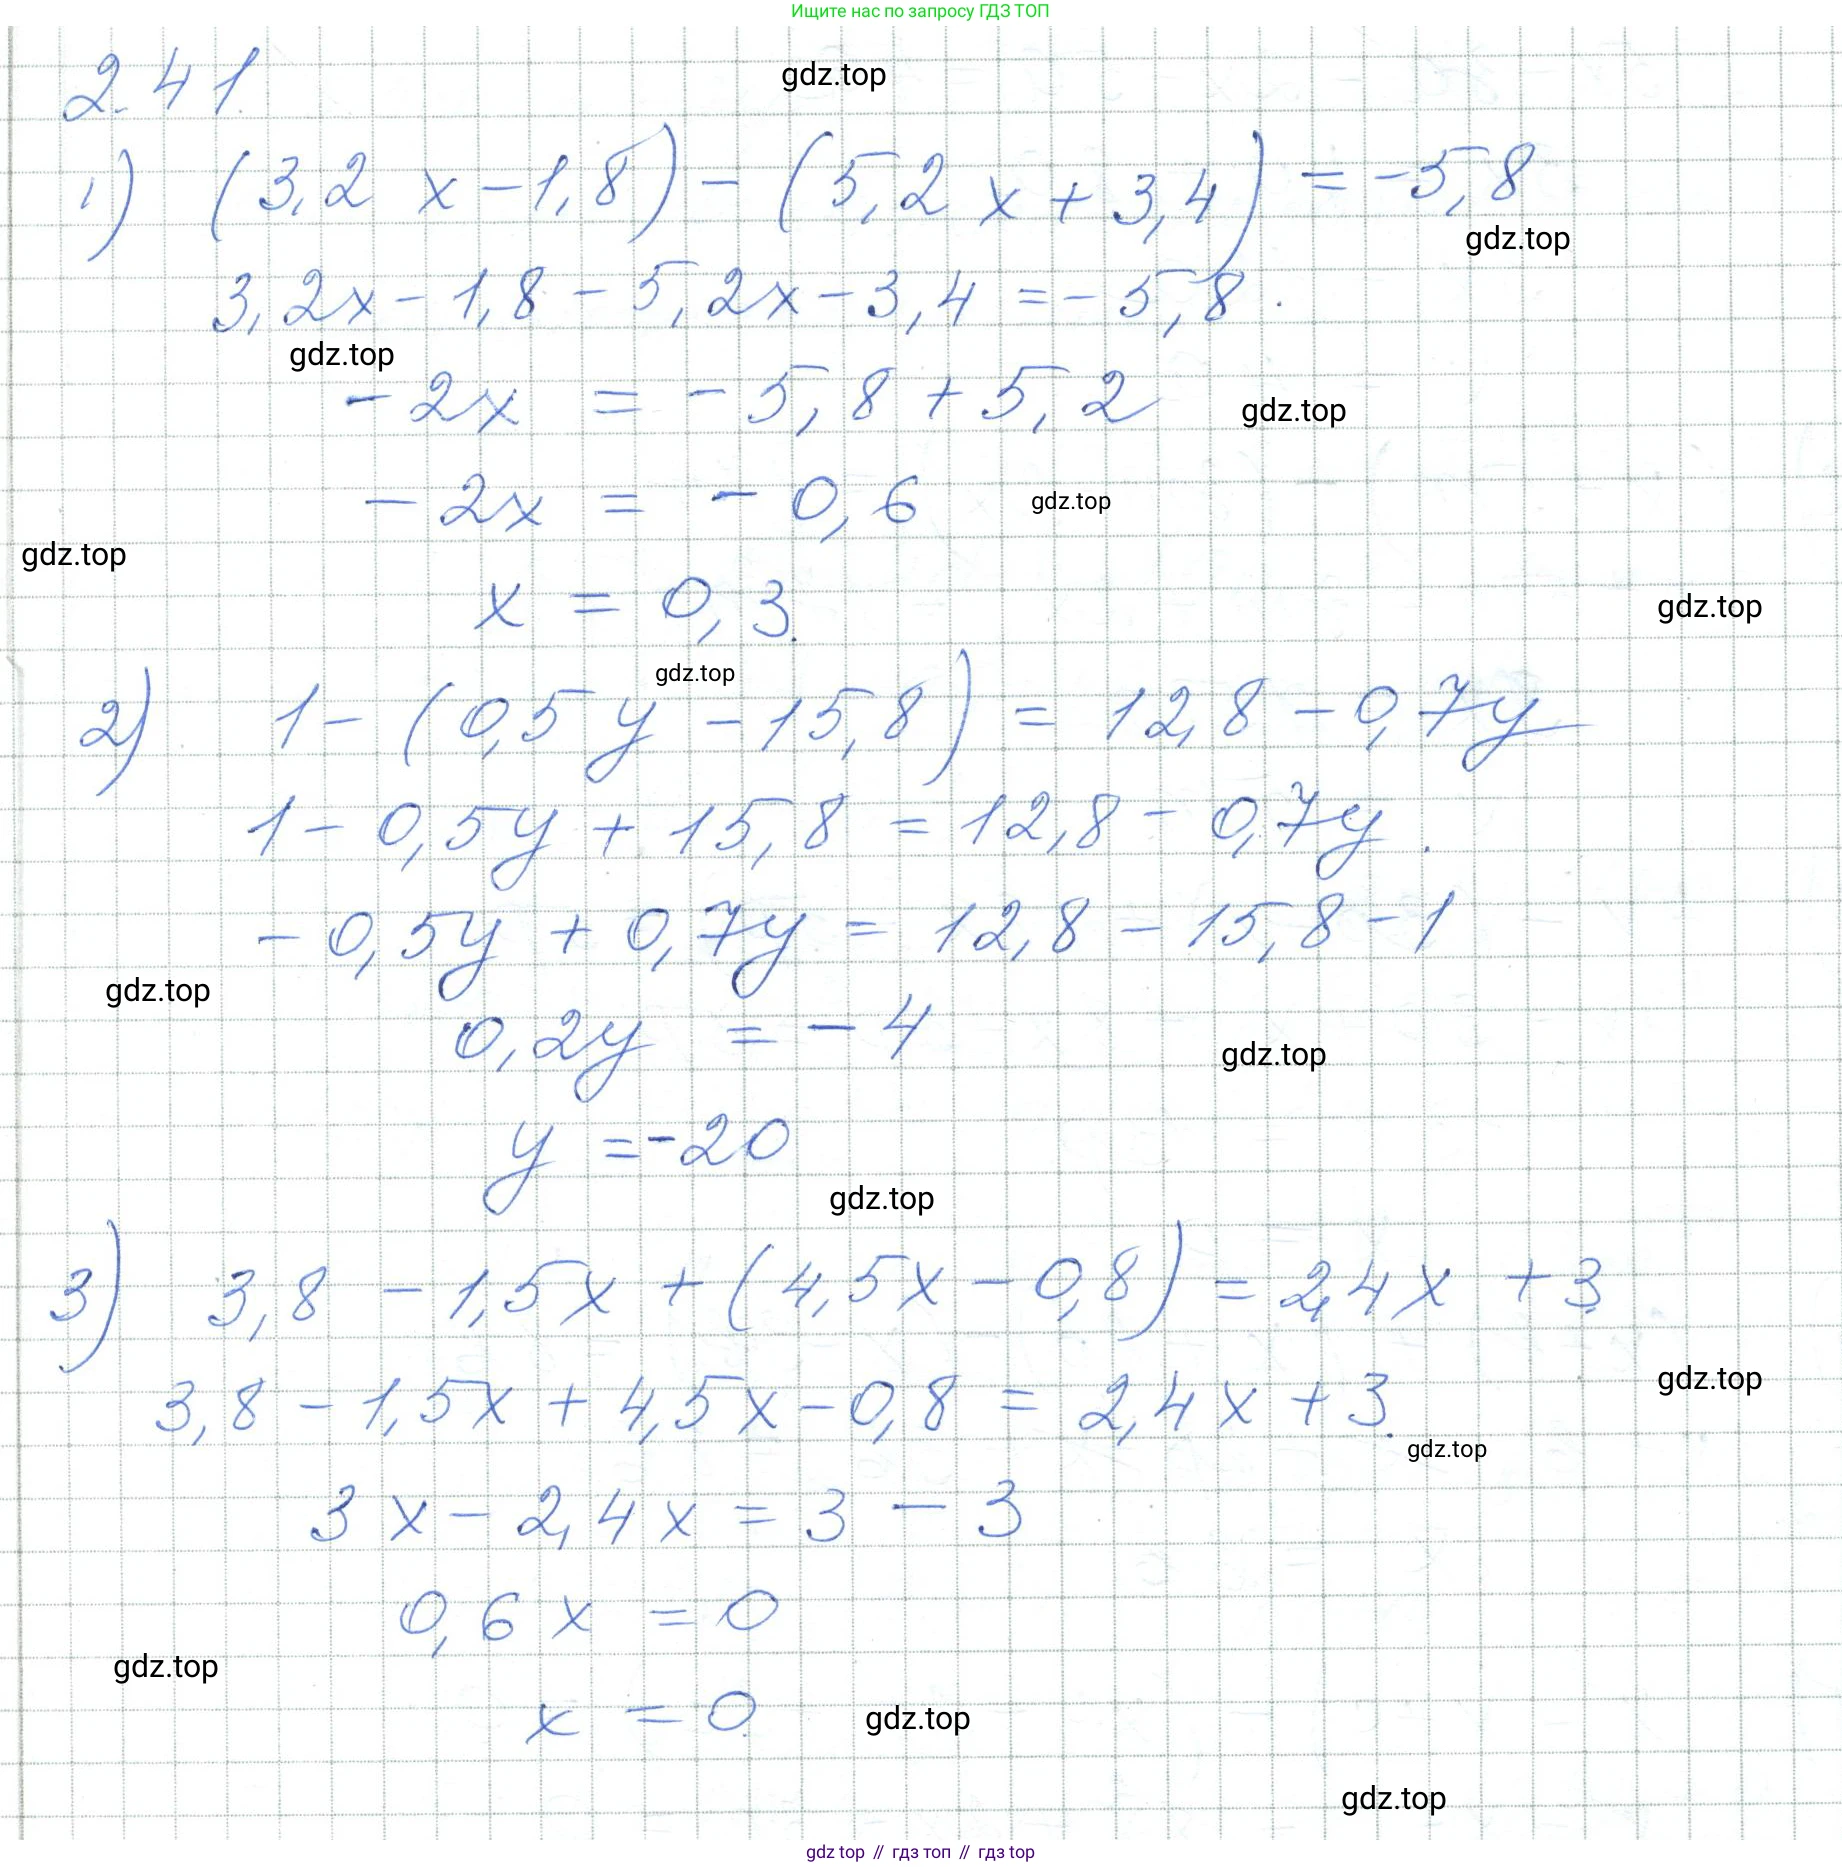 Ищите нас по запросу ГДЗ ТОП
2.41.
gdz.top
1) (3,2 x - 1,8) - (5,2 x + 3,4) = -5,8
gdz.top
3,2x - 1,8 - 5,2x - 3,4 = -5,8.
gdz.top
-2x = -5,8 + 5,2
gdz.top
-2x = -0,6
gdz.top
gdz.top
x = 0,3.
gdz.top
gdz.top
2) 1 - (0,5y - 15,8) = 12,8 - 0,7y
1 - 0,5y + 15,8 = 12,8 - 0,7y.
-0,5y + 0,7y = 12,8 - 15,8 - 1
gdz.top
0,2y = -4
gdz.top
y = -20
gdz.top
3) 3,8 - 1,5x + (4,5x - 0,8) = 2,4x + 3
gdz.top
3,8 - 1,5x + 4,5x - 0,8 = 2,4x + 3.
gdz.top
3x - 2,4x = 3 - 3
0,6x = 0
gdz.top
x = 0
gdz.top
gdz.top
gdz top // гдз топ // гдз top